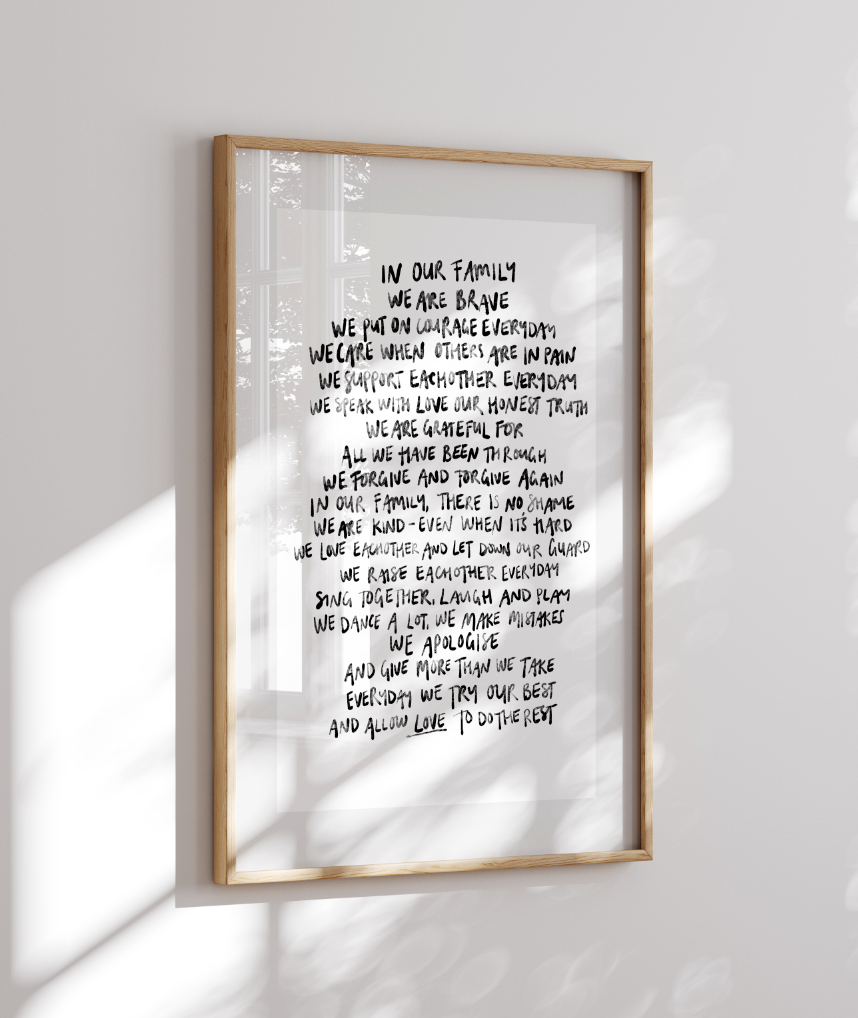 IN OUR FAMILY
WE ARE BRAVE
WE PUT ON COURAGE EVERYDAY
WE CARE WHEN OTHERS ARE IN PAIN
WE SUPPORT EACHOTHER EVERYDAY
WE SPEAK WITH LOVE OUR HONEST TRUTH
WE ARE GRATEFUL FOR
ALL WE HAVE BEEN THROUGH
WE FORGIVE AND FORGIVE AGAIN
IN OUR FAMILY, THERE IS NO SHAME
WE ARE KIND - EVEN WHEN IT'S HARD
WE LOVE EACHOTHER AND LET DOWN OUR GUARD
WE RAISE EACHOTHER EVERYDAY
SING TOGETHER, LAUGH AND PLAY
WE DANCE A LOT, WE MAKE MISTAKES
WE APOLOGISE
AND GIVE MORE THAN WE TAKE
EVERYDAY WE TRY OUR BEST
AND ALLOW LOVE TO DO THE REST